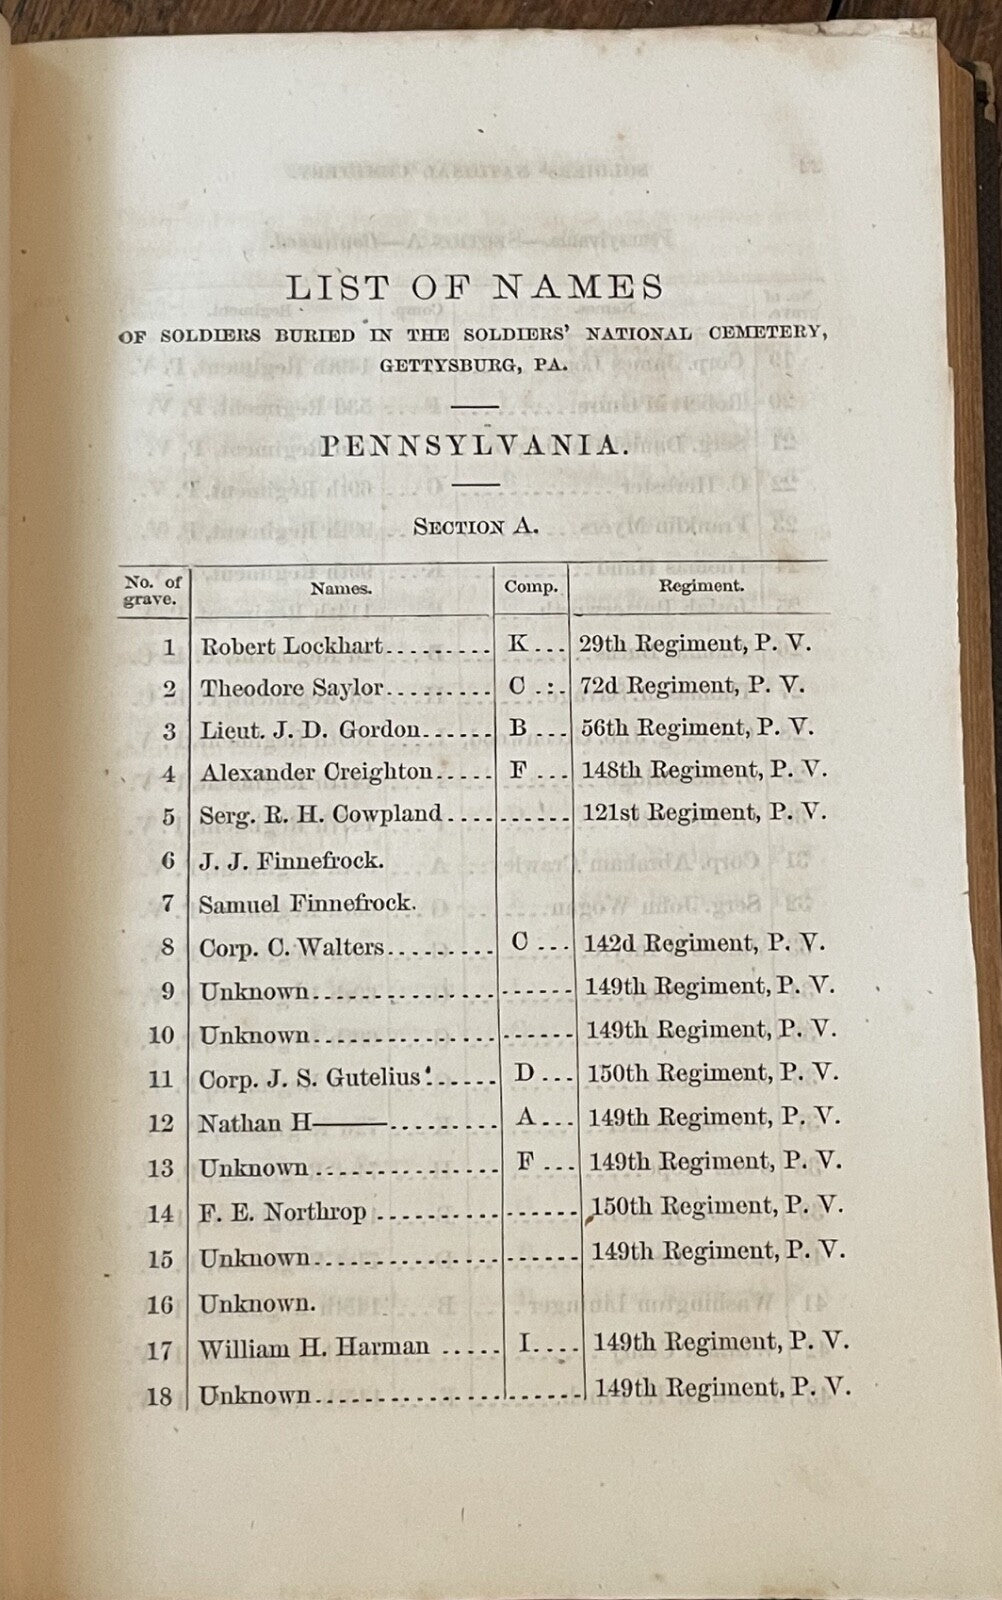 LIST OF NAMES
OF SOLDIERS BURIED IN THE SOLDIERS' NATIONAL CEMETERY,
GETTYSBURG, PA.
PENNSYLVANIA.
SECTION A.
No. of grave. Names. Comp. Regiment.
1 Robert Lockhart......... K... 29th Regiment, P. V.
2 Theodore Saylor......... C .:. 72d Regiment, P. V.
3 Lieut. J. D. Gordon...... B ... 56th Regiment, P. V.
4 Alexander Creighton..... F ... 148th Regiment, P. V.
5 Serg. R. H. Cowpland .... ...... 121st Regiment, P. V.
6 J. J. Finnefrock.
7 Samuel Finnefrock.
8 Corp. C. Walters......... C ... 142d Regiment, P. V.
9 Unknown............... ...... 149th Regiment, P. V.
10 Unknown............... ...... 149th Regiment, P. V.
11 Corp. J. S. Gutelius'...... D ... 150th Regiment, P. V.
12 Nathan H——— ......... A... 149th Regiment, P. V.
13 Unknown ............... F ... 149th Regiment, P. V.
14 F. E. Northrop .......... ...... 150th Regiment, P. V.
15 Unknown............... ...... 149th Regiment, P. V.
16 Unknown.
17 William H. Harman ..... I.... 149th Regiment, P. V.
18 Unknown............... ...... 149th Regiment, P. V.